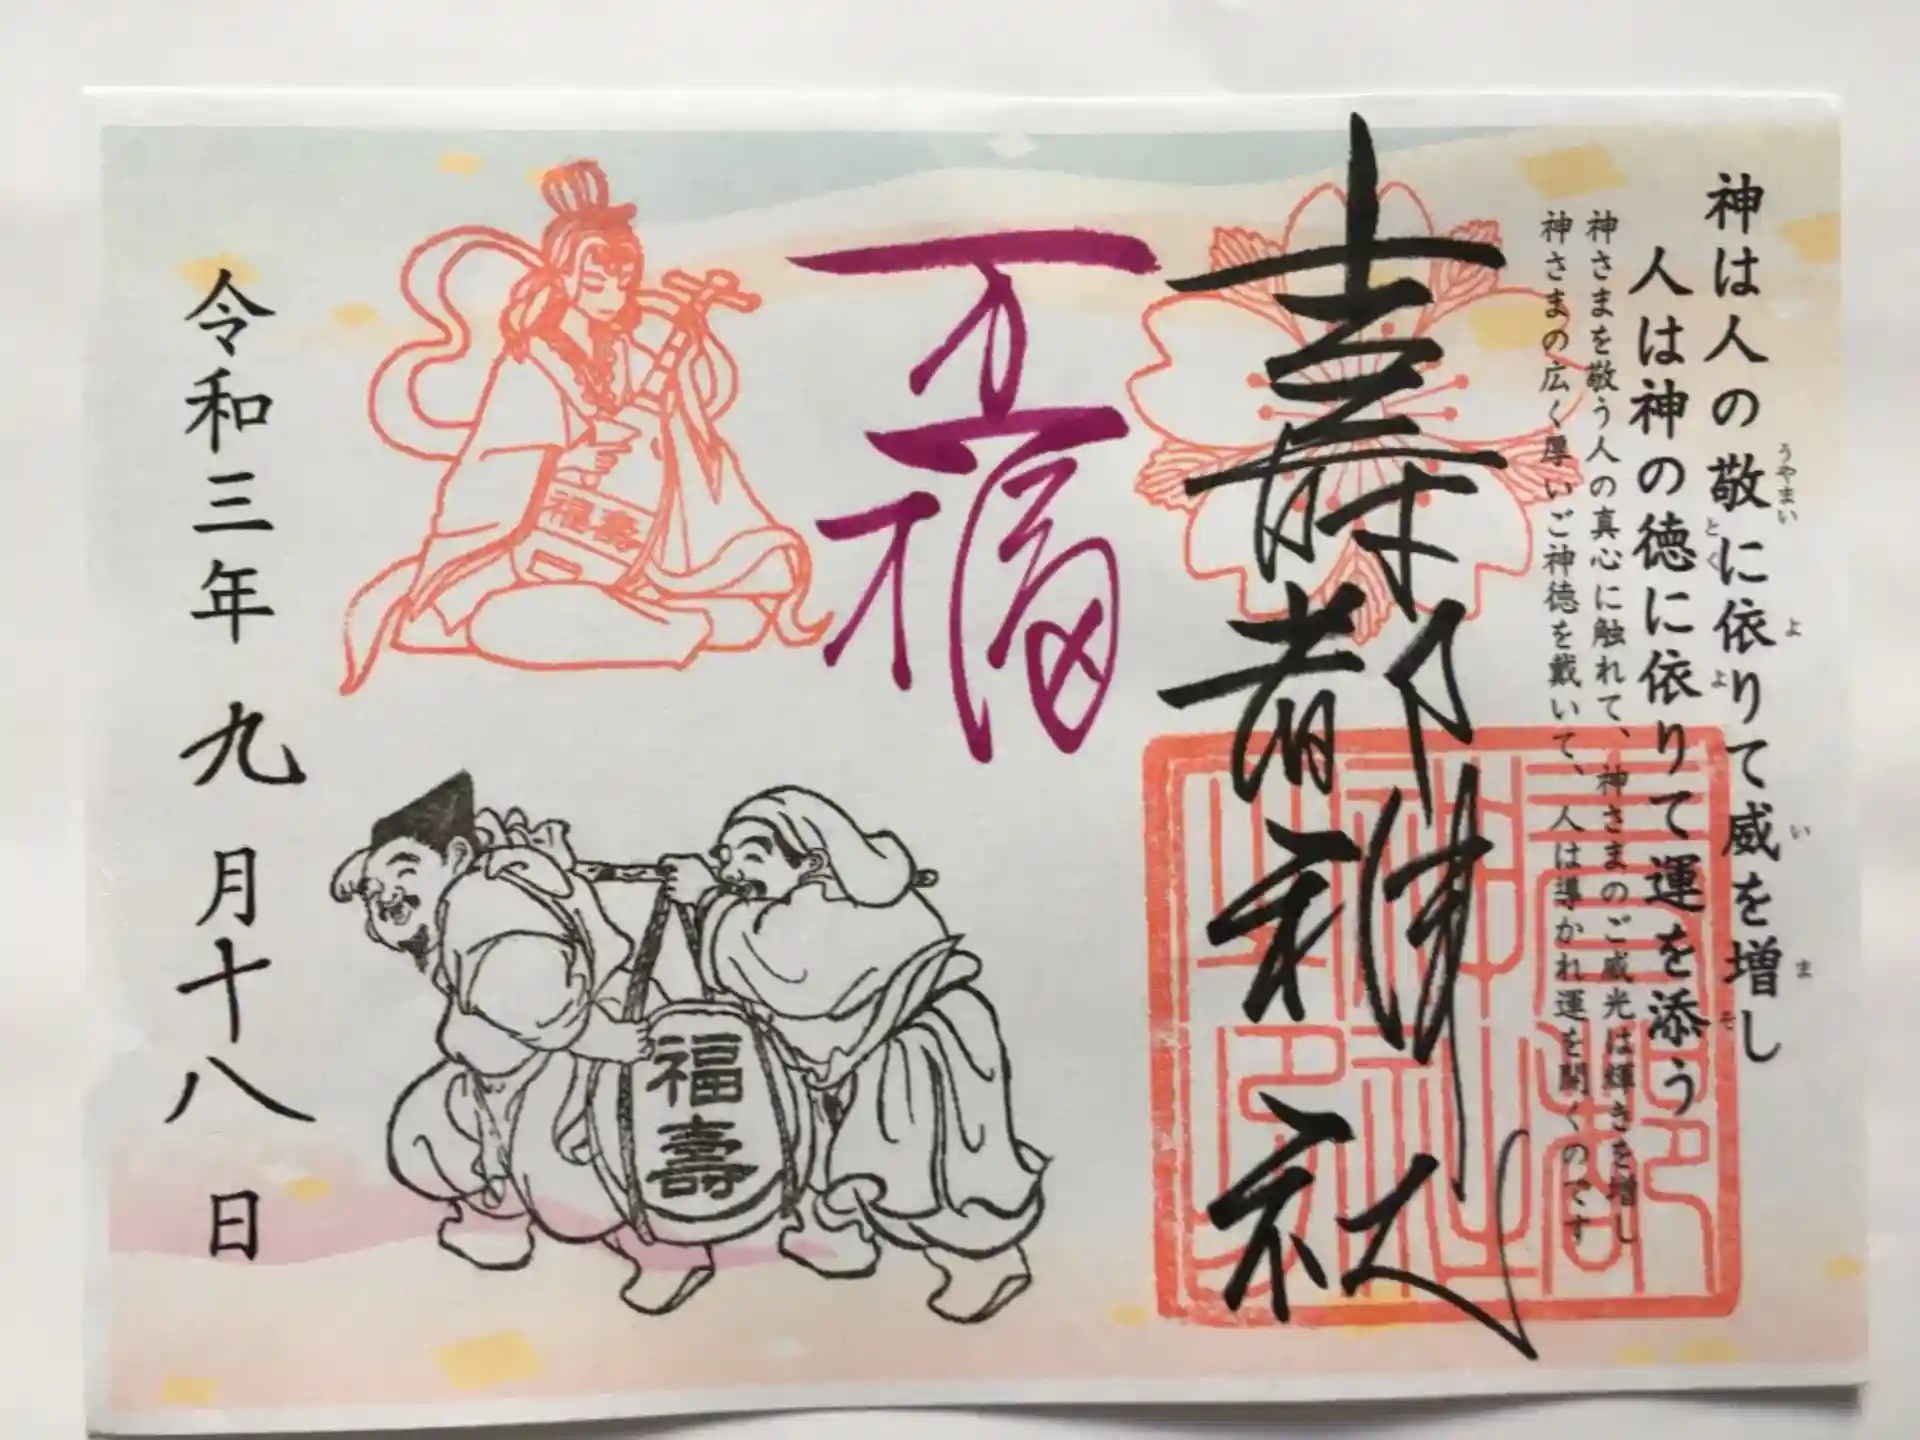 神は人の敬に依りて威を増し
うやまい
よ
い
ま
人は神の徳に依りて運を添う
とく
よ
そ
神さまを敬う人の真心に触れて、神さまのご威光は輝きを増し
神さまの広く厚いご神徳を戴いて、人は導かれ運を開くのです
壽都神社
五福
福壽
福壽
令和三年九月十八日